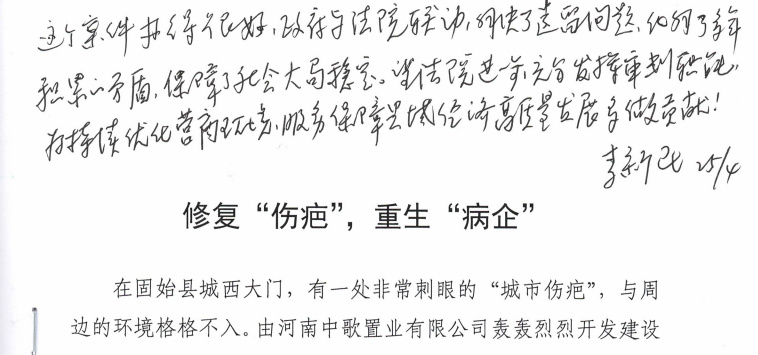 这个案件办得很好，政府与法院联动，解决了遗留问题，化解了多年
积累的矛盾，保障了社会大局稳定。望法院进一步充分发挥审判职能，
为持续优化营商环境，服务保障县域经济高质量发展多做贡献！
李新民 25/4
修复“伤疤”，重生“病企”
在固始县城西大门，有一处非常刺眼的“城市伤疤”，与周
边的环境格格不入。由河南中歌置业有限公司轰轰烈烈开发建设